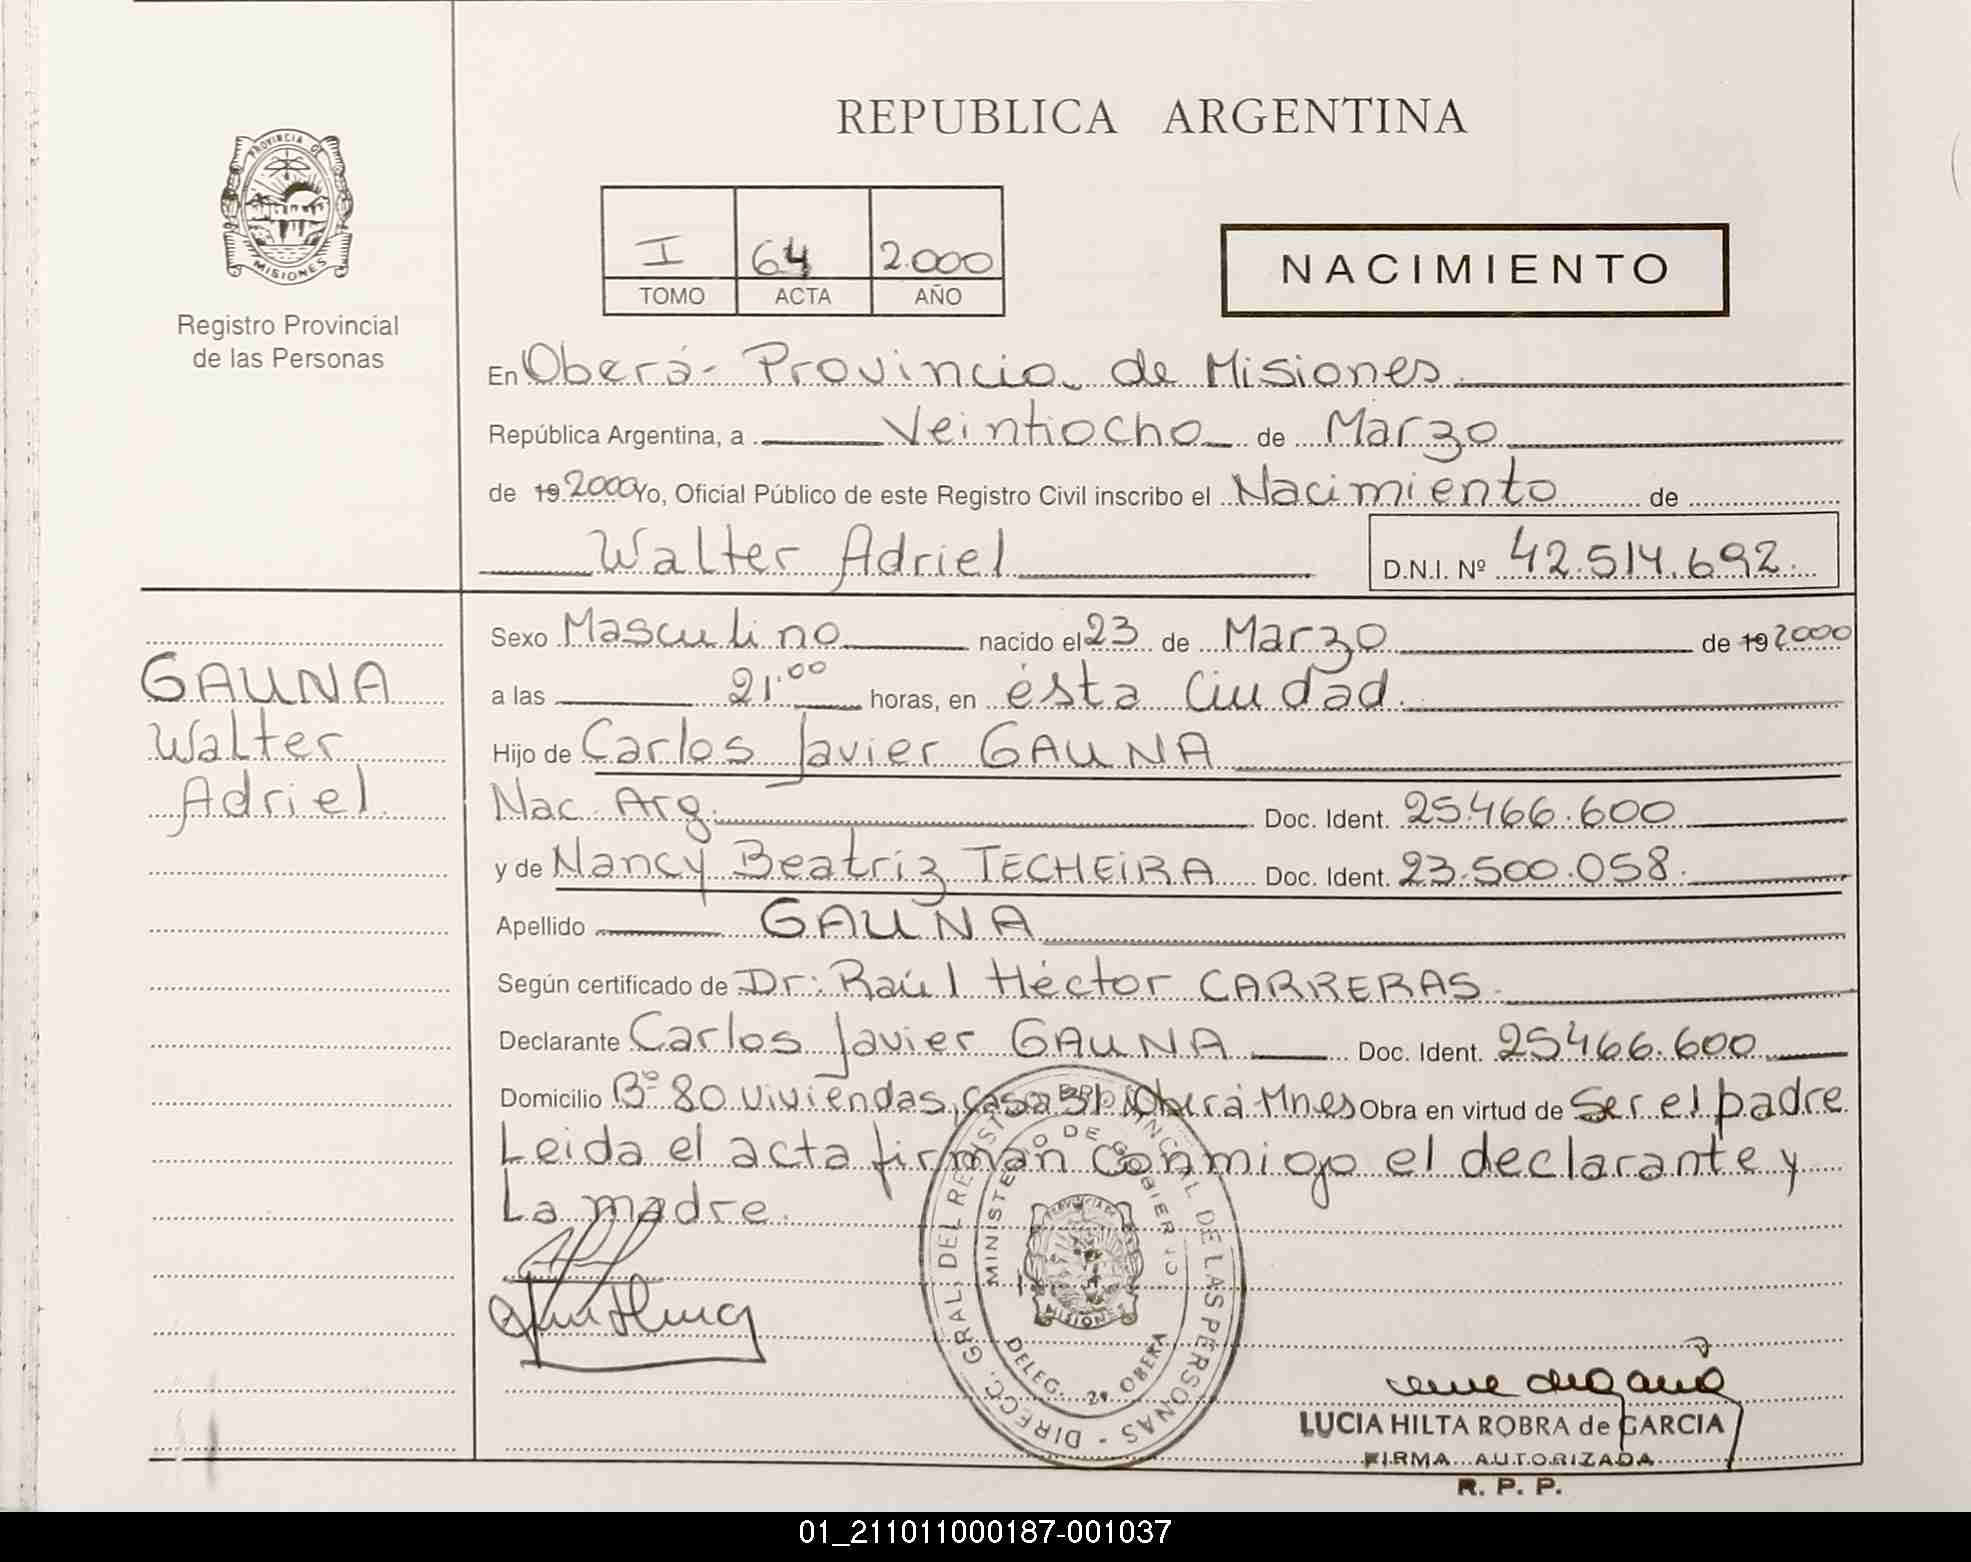 REPUBLICA ARGENTINA
PROVINCIA DE
MISIONES
Registro Provincial
de las Personas
I 64 2.000
TOMO ACTA AÑO
NACIMIENTO
En Oberá - Provincia de Misiones.
República Argentina, a Veintiocho de Marzo
de 19 2000 Yo, Oficial Público de este Registro Civil inscribo el Nacimiento de
Walter Adriel
D.N.I. Nº 42.514.692.
GAUNA
Walter
Adriel.
Sexo Masculino nacido el 23 de Marzo de 19 2000
a las 21.00 horas, en ésta Ciudad.
Hijo de Carlos Javier GAUNA
Nac. Arg. Doc. Ident. 25.466.600
y de Nancy Beatriz TECHEIRA Doc. Ident. 23.500.058.
Apellido GAUNA
Según certificado de Dr: Raúl Héctor CARRERAS.
Declarante Carlos Javier GAUNA Doc. Ident. 25466.600
Domicilio Bº 80 viviendas, Casa 31 Oberá Mnes Obra en virtud de Ser el padre
Leida el acta firman conmigo el declarante y
La madre.
DIRECC. GRAL. DEL REGISTRO PROVINCIAL DE LAS PERSONAS -
MINISTERIO DE GOBIERNO
MISIONES
DELEG. 2ª OBERA
LUCIA HILTA ROBRA de GARCIA
FIRMA AUTORIZADA
R. P. P.
01_211011000187-001037